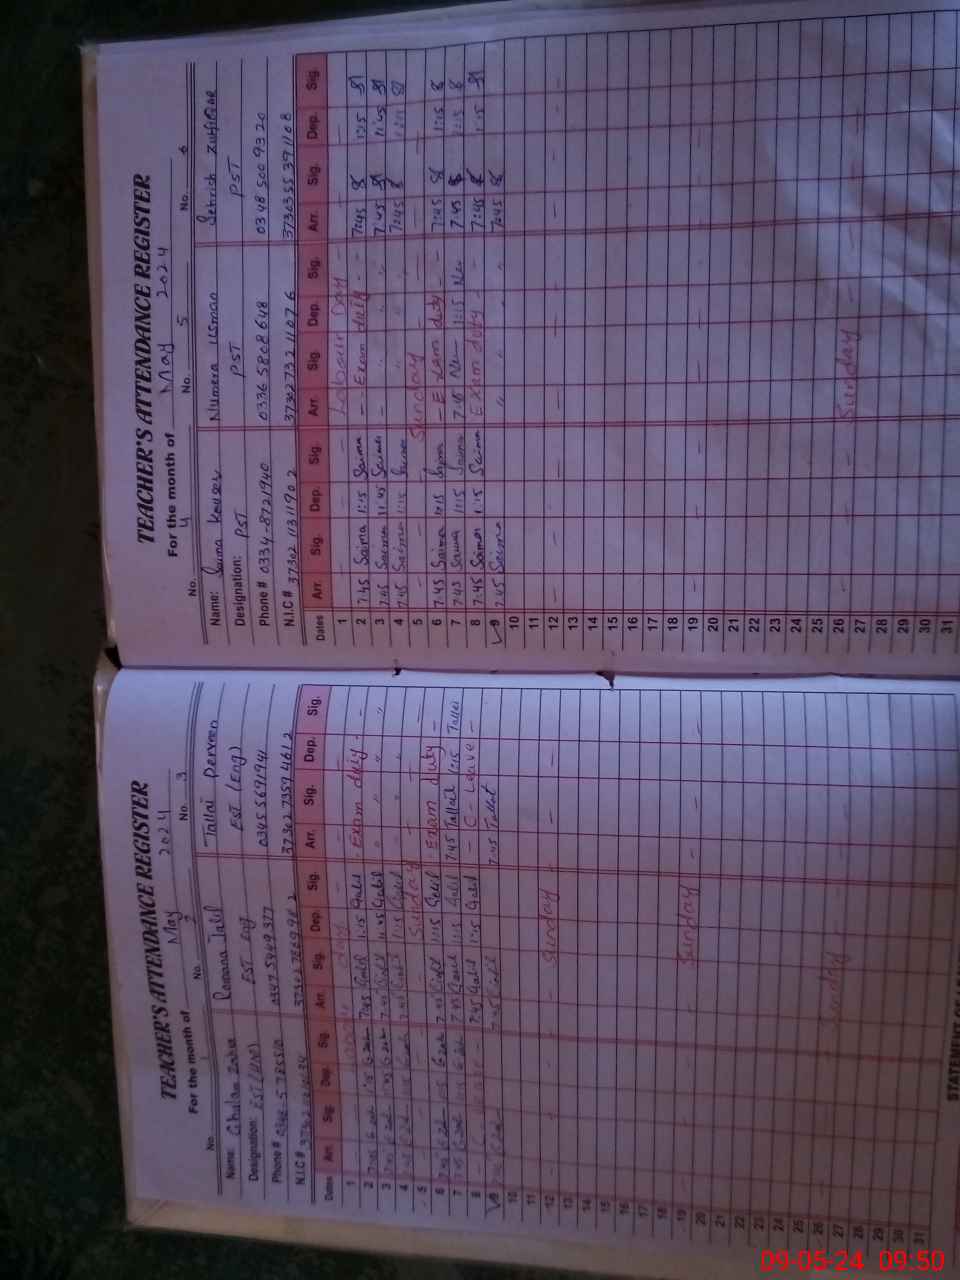 TEACHER'S ATTENDANCE REGISTER
For the month of May 2024
No. No. 2 No. 3
Name: Ghulam Zahra
Designation: EST (UM)
Phone #
N.I.C #
Romana Jalil
EST Eng
03475449377
Tallat Perveen
EST (Eng)
03455691941
Dates Arr. Sig. Dep. Sig. Arr. Sig. Dep. Sig. Arr. Sig. Dep. Sig.
1 Labour day
2 7:45 1:15 7:45 Jalil 1:15 Jalil Exam duty
3 7:45 11:45 7:45 Jalil 11:45 Jalil " "
4 7:45 1:15 7:45 Jalil 1:15 Jalil " "
5 Sunday
6 7:45 1:15 7:45 Jalil 1:15 Jalil Exam duty
7 7:45 1:15 7:45 Jalil 1:15 Jalil 7:45 Tallat 1:15 Tallat
8 7:45 Jalil 1:15 Jalil C-Leave
9 7:45 7:45 Jalil 7:45 Tallat
10
11
12 Sunday
13
14
15
16
17
18
19 Sunday
20
21
22
23
24
25
26 Sunday
27
28
29
30
31
TEACHER'S ATTENDANCE REGISTER
For the month of May 2024
No. 4 No. 5 No. 6
Name: Saima Kousar Numera Usman Sehrish Zulfiqar
Designation: PST PST PST
Phone # 0334-8721940 03365808648 03485009320
N.I.C # 3730211311902 3730273211076 3730355391108
Dates Arr. Sig. Dep. Sig. Arr. Sig. Dep. Sig. Arr. Sig. Dep. Sig.
1 Labour Day
2 7:45 Saima 1:15 Saima Exam duty 7:45 1:15
3 7:45 Saima 11:45 Saima " " 7:45 11:45
4 7:45 Saima 1:15 Saima " " 7:45 1:15
5 Sunday
6 7:45 Saima 1:15 Saima Exam duty 7:45 1:15
7 7:45 Saima 1:15 Saima 7:45 1:15 7:45 1:15
8 7:45 Saima 1:15 Saima Exam duty 7:45 1:15
9 7:45 Saima " " 7:45
10
11
12
13
14
15
16
17
18
19
20
21
22
23
24
25
26 Sunday
27
28
29
30
31
09-05-24 09:50